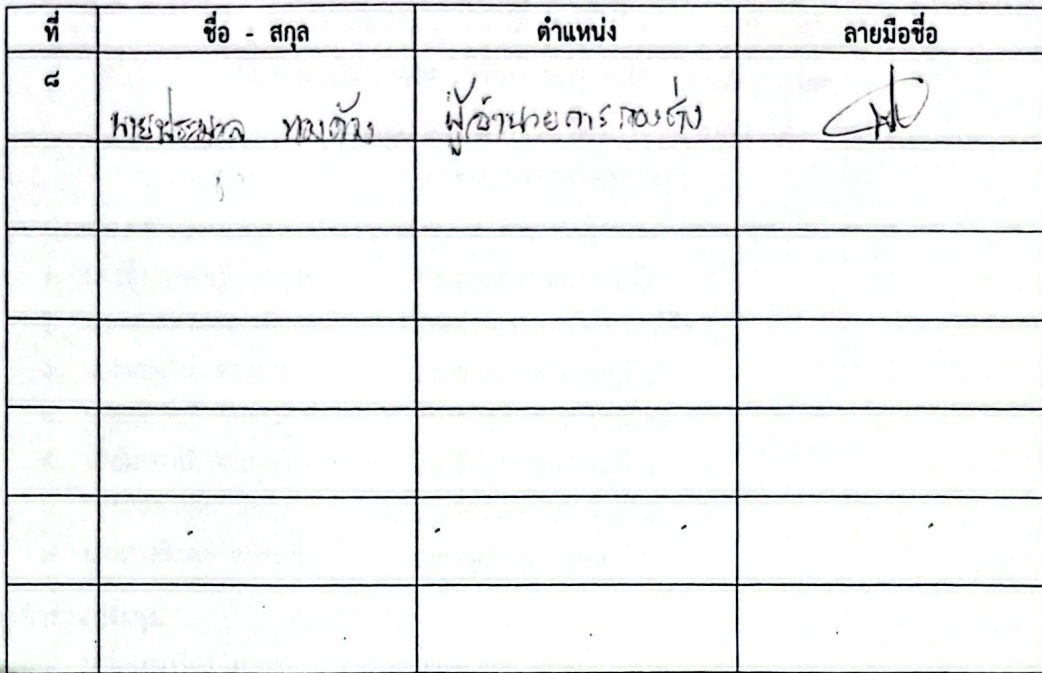 ที่ ชื่อ - สกุล ตำแหน่ง ลายมือชื่อ
๘ นายประมวล ผู้อำนวยการกองช่าง